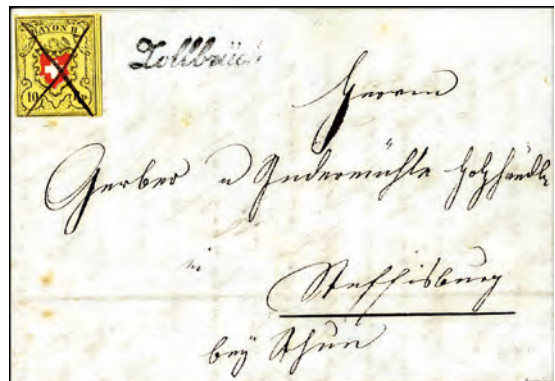 RAYON II
10 Rp
Zollbrück
Herren
Gerber u Indermühle Holzhändler
in
Steffisburg
bey Thun